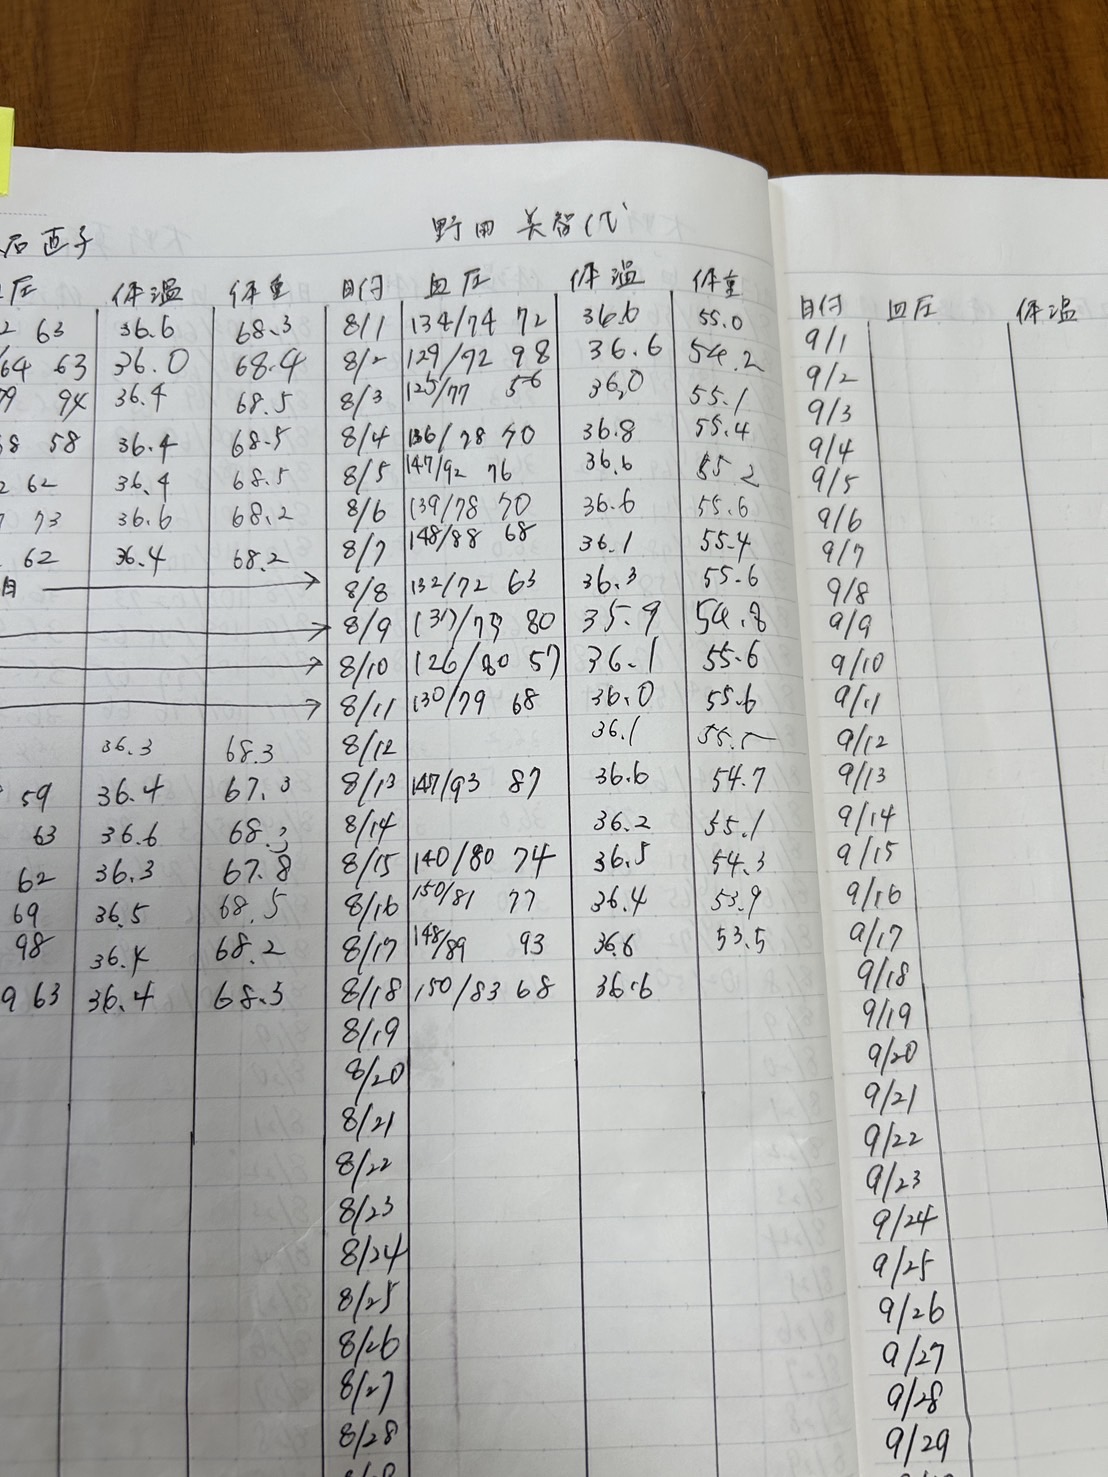 直子 野田 美智代
圧 体温 体重 日付 血圧 体温 体重 日付 血圧 体温
2 63 36.6 68.3 8/1 134/74 72 36.6 55.0 9/1
64 63 36.0 68.4 8/2 129/92 98 36.6 54.2 9/2
79 94 36.4 68.5 8/3 125/77 56 36.0 55.1 9/3
58 36.4 68.5 8/4 136/78 70 36.8 55.4 9/4
2 62 36.4 68.5 8/5 147/92 76 36.6 55.2 9/5
73 36.6 68.2 8/6 139/78 70 36.6 55.6 9/6
62 36.4 68.2 8/7 148/88 68 36.1 55.4 9/7
8/8 132/72 63 36.3 55.6 9/8
8/9 80 35.9 54.8 9/9
8/10 126/80 57 36.1 55.6 9/10
8/11 130/79 68 36.0 55.6 9/11
36.3 68.3 8/12 36.1 9/12
59 36.4 67.3 8/13 147/93 87 36.6 54.7 9/13
63 36.6 68.3 8/14 36.2 55.1 9/14
62 36.3 67.8 8/15 140/80 74 36.5 54.3 9/15
69 36.5 68.5 8/16 150/81 77 36.4 53.9 9/16
98 36.4 68.2 8/17 148/89 93 36.6 53.5 9/17
9 63 36.4 68.3 8/18 150/83 68 36.6 9/18
8/19 9/19
8/20 9/20
8/21 9/21
8/22 9/22
8/23 9/23
8/24 9/24
8/25 9/25
8/26 9/26
8/27 9/27
8/28 9/28
9/29